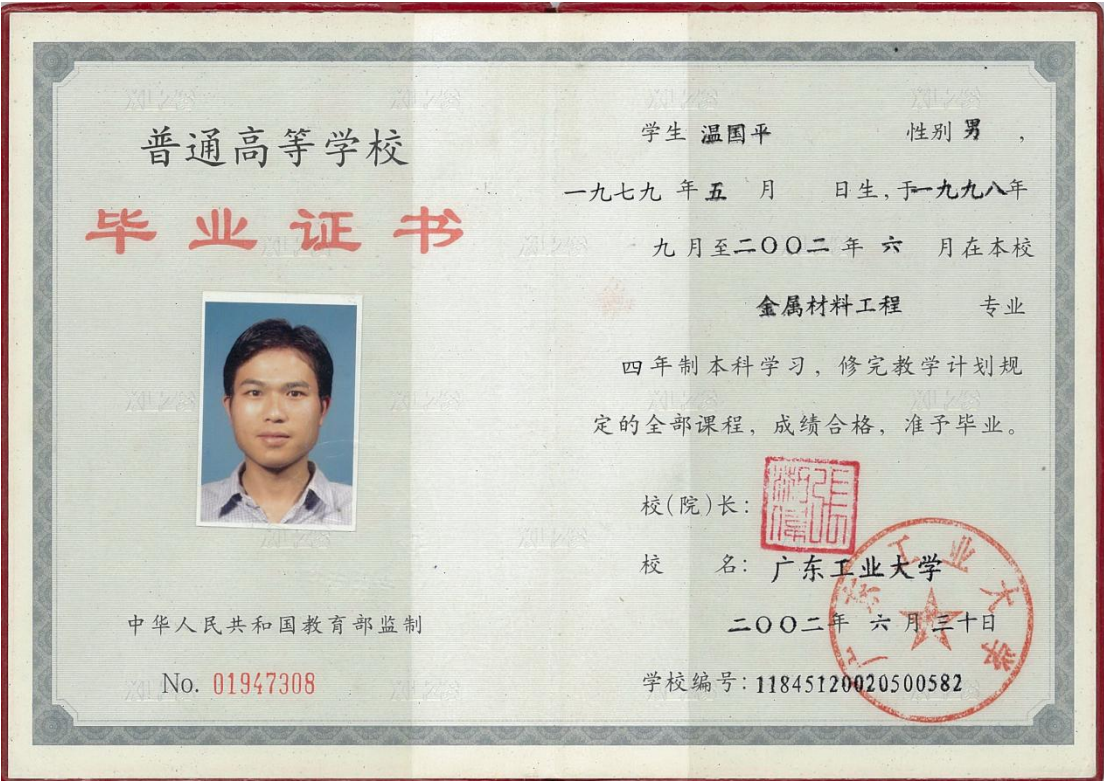 普通高等学校
毕业证书
中华人民共和国教育部监制
No. 01947308
学生 温国平 性别 男 ,
一九七九 年 五 月 日生, 于 一九九八年
九 月至 二〇〇二 年 六 月在本校
金属材料工程 专业
四年制本科学习, 修完教学计划规
定的全部课程, 成绩合格, 准予毕业。
校(院)长:
校 名: 广东工业大学
二〇〇二年 六 月 三十日
学校编号: 11845120020500582
广东工业大学